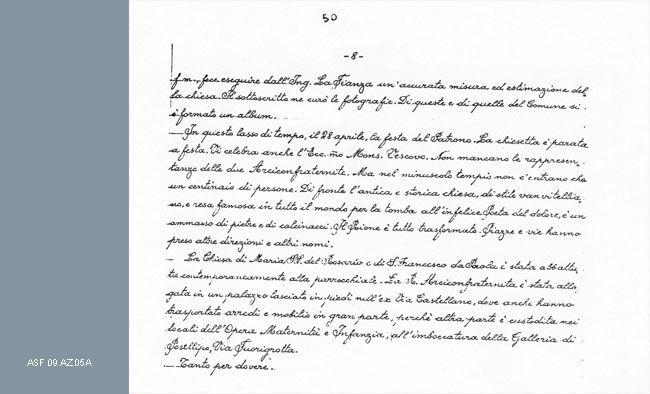 50
-8-
f.m., fece eseguire dall'Ing. La Fianza un'accurata misura ed estimazione del
la chiesa. Il sottoscritto ne curò le fotografie. Di queste e di quelle del Comune si
è formato un album.
In questo lasso di tempo, il 28 aprile, la festa del Patrono. La chiesetta è parata
a festa. Vi celebra anche l'Ecc.mo Mons. Vescovo. Non mancano le rappresen
tanze delle due Arciconfraternite. Ma nel minuscolo tempio non c'entrano che
un centinaio di persone. Di fronte l'antica e storica chiesa, di stile vanvitellia
no, e resa famosa in tutto il mondo per la tomba all'infelice Poeta del dolore, è un
ammasso di pietre e di calcinacci. Il Rione è tutto trasformato. Piazze e vie hanno
preso altre direzioni e altri nomi.
La Chiesa di Maria SS. del Rosario e di S. Francesco da Paola è stata abbattu
ta contemporaneamente alla parrocchiale. La R. Arciconfraternita è stata allo
gata in un palazzo lasciato in piedi nell'ex Via Castellano, dove anche hanno
trasportato arredi e mobilio in gran parte, perchè altra parte è custodita nei
locali dell'Opera Maternità e Infanzia, all'imboccatura della Galleria di
Posillipo, Via Fuorigrotta.
Tanto per dovere.
ASF 09 AZ05A